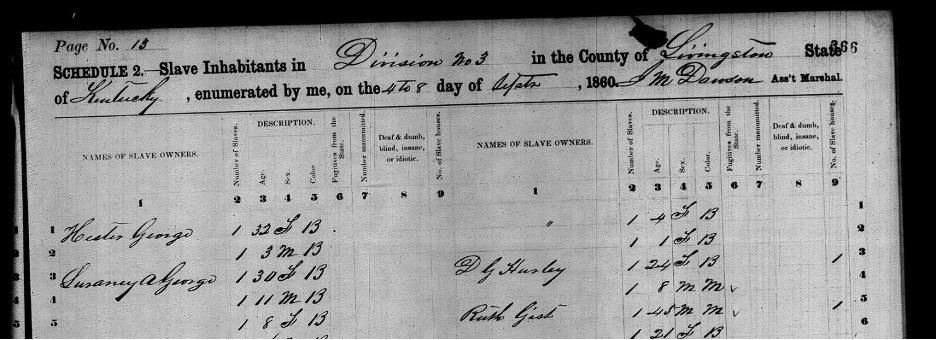 Page No. 15
SCHEDULE 2.—Slave Inhabitants in Division No 3 in the County of Livingston State 366
of Kentucky, enumerated by me, on the 4 to 8 day of Septr, 1860. J M Dawson Ass't Marshal.
NAMES OF SLAVE OWNERS. Number of Slaves. DESCRIPTION. Age. Sex. Color. Fugitives from the State. Number manumitted. Deaf & dumb, blind, insane, or idiotic. No. of Slave houses. NAMES OF SLAVE OWNERS. Number of Slaves. DESCRIPTION. Age. Sex. Color. Fugitives from the State. Number manumitted. Deaf & dumb, blind, insane, or idiotic. No. of Slave houses.
1 2 3 4 5 6 7 8 9 1 2 3 4 5 6 7 8 9
1 1 Hester George 1 32 F B " 1 4 F B 1
2 2 1 3 M B 1 1 F B 2
3 3 A George 1 30 F B D G Husley 1 24 F B 1 3
4 4 1 11 M B 1 8 M M 5
5 5 1 8 F B Ruth Gist 1 45 M M 1 6
1 21 F B